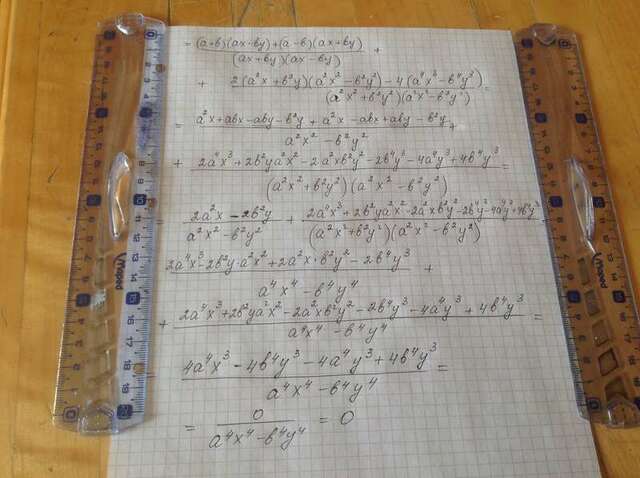 = (a+b)(ax-by)+(a-b)(ax+by) / (ax+by)(ax-by) +
+ 2(a²x+b²y)(a²x²-b²y²)-4(a⁴x³-b⁴y³) / (a²x²+b²y²)(a²x²-b²y²) =
= a²x+abx-aby-b²y+a²x-abx+aby-b²y / a²x²-b²y² +
+ 2a⁴x³+2b²ya²x²-2a²xb²y²-2b⁴y³-4a⁴y³+4b⁴y³ / (a²x²+b²y²)(a²x²-b²y²) =
= 2a²x-2b²y / a²x²-b²y² + 2a⁴x³+2b²ya²x²-2a²xb²y²-2b⁴y³-4a⁴y³+4b⁴y³ / (a²x²+b²y²)(a²x²-b²y²)
2a⁴x³-2b²y·a²x²+2a²x·b²y²-2b⁴y³ / a⁴x⁴-b⁴y⁴ +
+ 2a⁴x³+2b²ya²x²-2a²xb²y²-2b⁴y³-4a⁴y³+4b⁴y³ / a⁴x⁴-b⁴y⁴ =
4a⁴x³-4b⁴y³-4a⁴y³+4b⁴y³ / a⁴x⁴-b⁴y⁴ =
= 0 / a⁴x⁴-b⁴y⁴ = 0
Maped
Maped